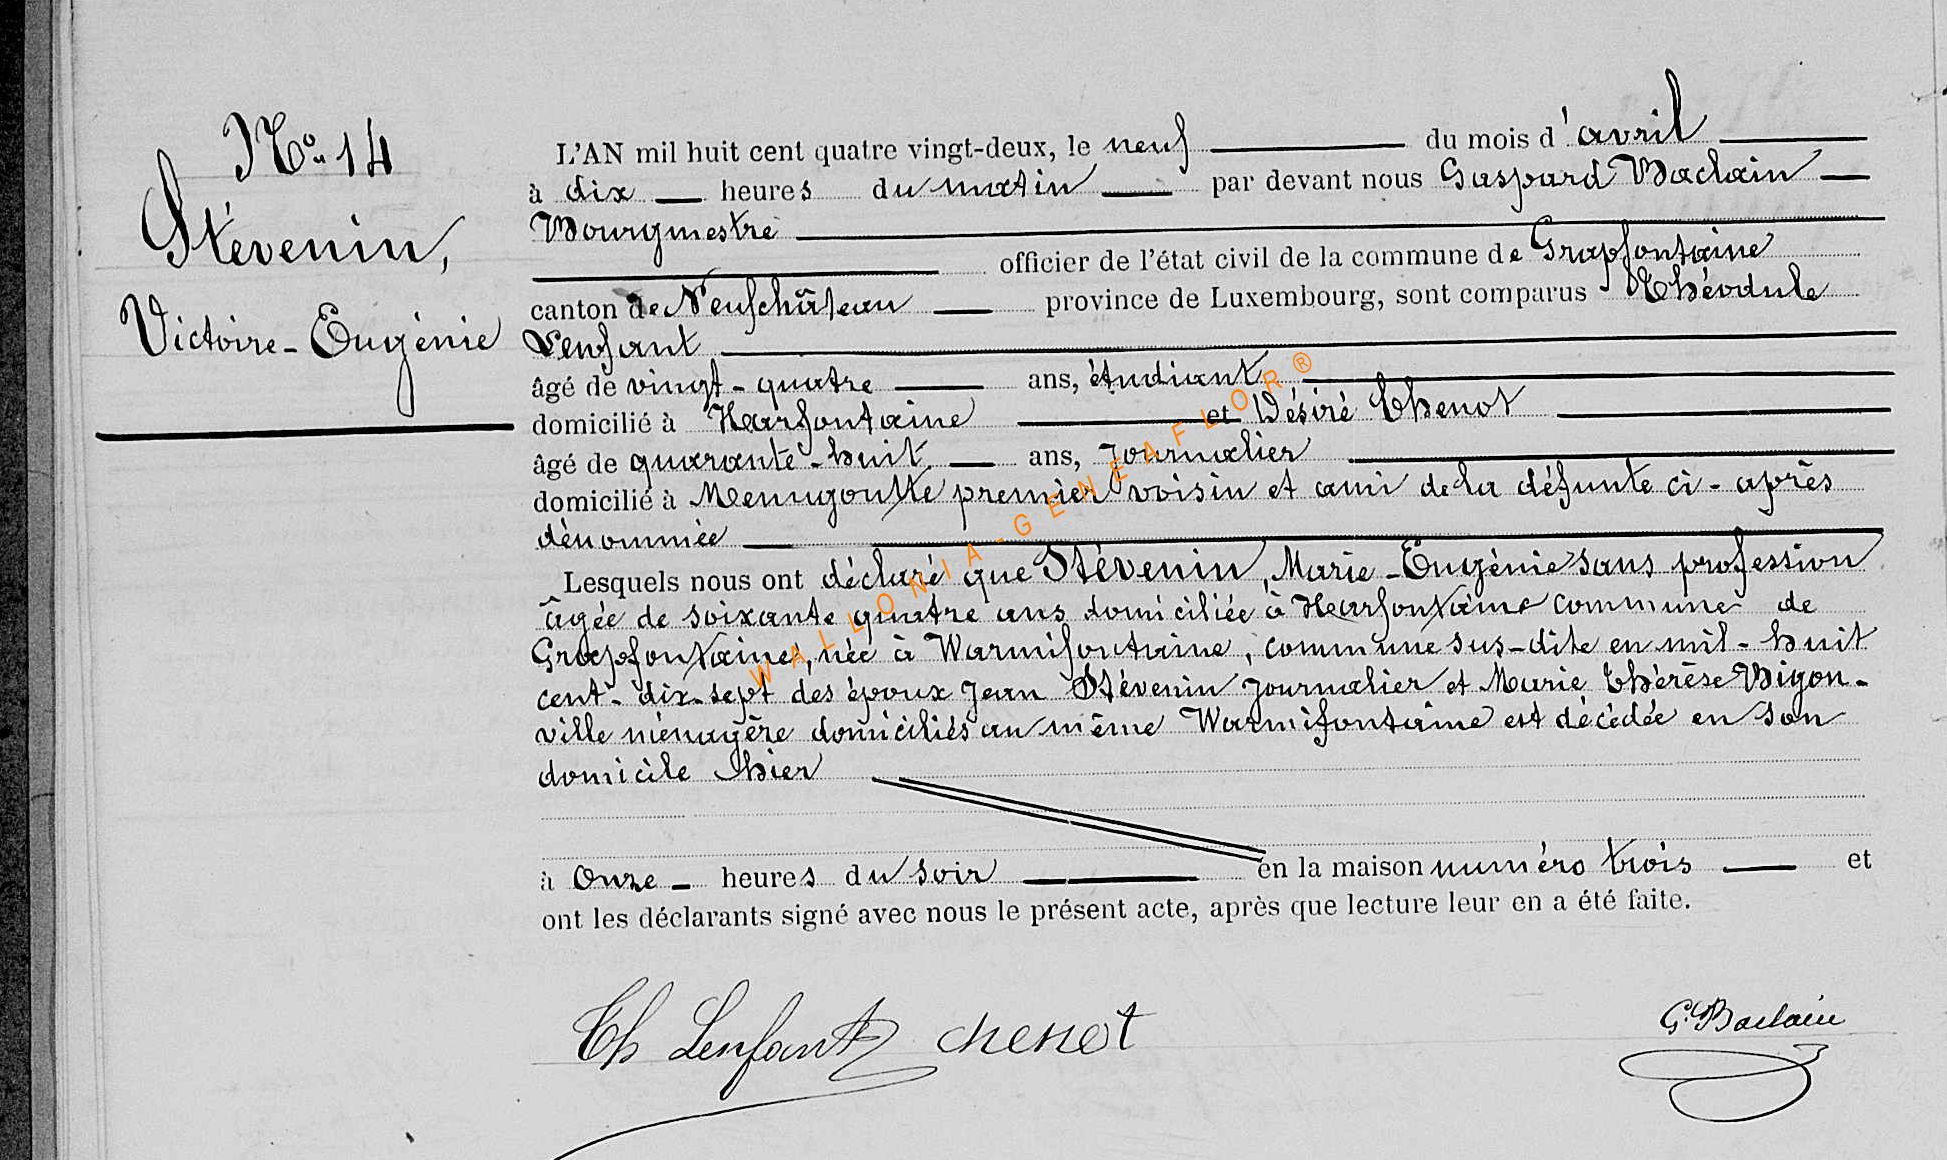 No. 14
Stévenin,
Victoire-Eugénie
L'AN mil huit cent quatre vingt-deux, le neuf du mois d'avril
à dix heures du matin par devant nous Gaspard Baclain
Bourgmestre
officier de l'état civil de la commune de Grapfontaine
canton de Neufchâteau province de Luxembourg, sont comparus Théodule
Lenfant
âgé de vingt-quatre ans, étudiant
domicilié à Harfontaine et Désiré Chenot
âgé de quarante-huit ans, Journalier
domicilié à Menugoutte premier voisin et ami de la défunte ci-après
dénommée
Lesquels nous ont déclaré que Stévenin, Marie-Eugénie sans profession
âgée de soixante quatre ans domiciliée à Harfontaine commune de
Grapfontaine, née à Warmifontaine, commune sus-dite en mil-huit
cent-dix-sept des époux Jean Stévenin Journalier et Marie Thérèse Bigon-
ville ménagère domiciliés au même Warmifontaine est décédée en son
domicile hier
à Onze heures du soir en la maison numéro trois et
ont les déclarants signé avec nous le présent acte, après que lecture leur en a été faite.
Th Lenfant chenot G. Baclain
WALLONIA-GENEAFLOR®